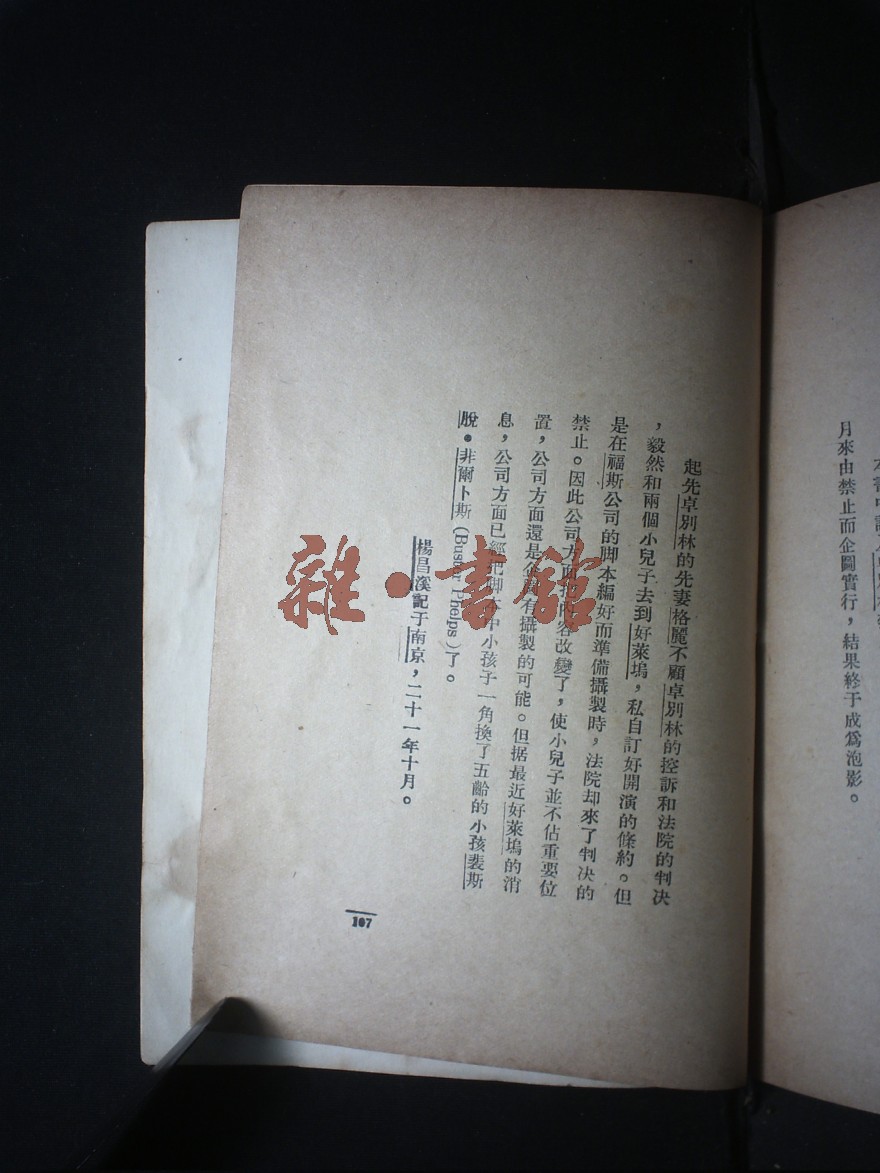 月來由禁止而企圖實行，結果終于成爲泡影。
起先卓別林的先妻格麗不顧卓別林的控訴和法院的判决
，毅然和兩個小兒子去到好萊塢，私自訂好開演的條約。但
是在福斯公司的脚本編好而準備攝製時，法院却來了判决的
禁止。因此公司方面把內容改變了，使小兒子並不佔重要位
置，公司方面還是企圖有攝製的可能。但据最近好萊塢的消
息，公司方面已經把脚本中小孩子一角換了五齡的小孩裴斯
脫•非爾卜斯(Buster Phelps)了。
楊昌溪記于南京，二十一年十月。
107
雜·書館